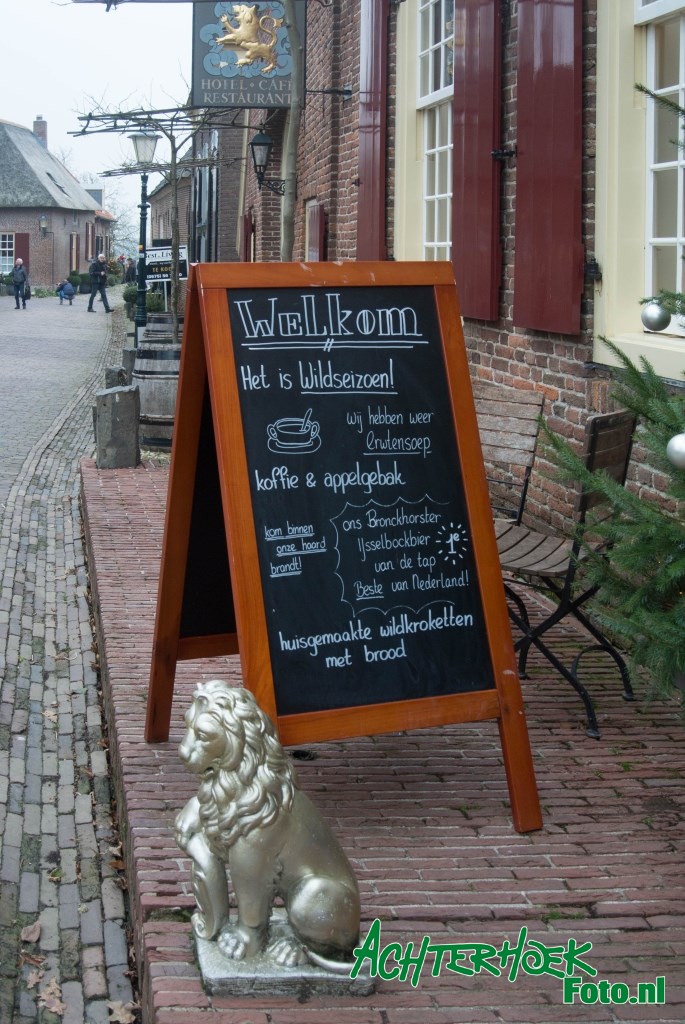 HOTEL · CAFÉ
RESTAURANT
TE KOOP
Welkom
Het is Wildseizoen!
Wij hebben weer
Erwtensoep
koffie & appelgebak
kom binnen
onze haard
brandt!
ons Bronckhorster
IJsselbockbier
van de tap
Beste van Nederland!
1e
huisgemaakte wildkroketten
met brood
ACHTERHOEK
Foto.nl